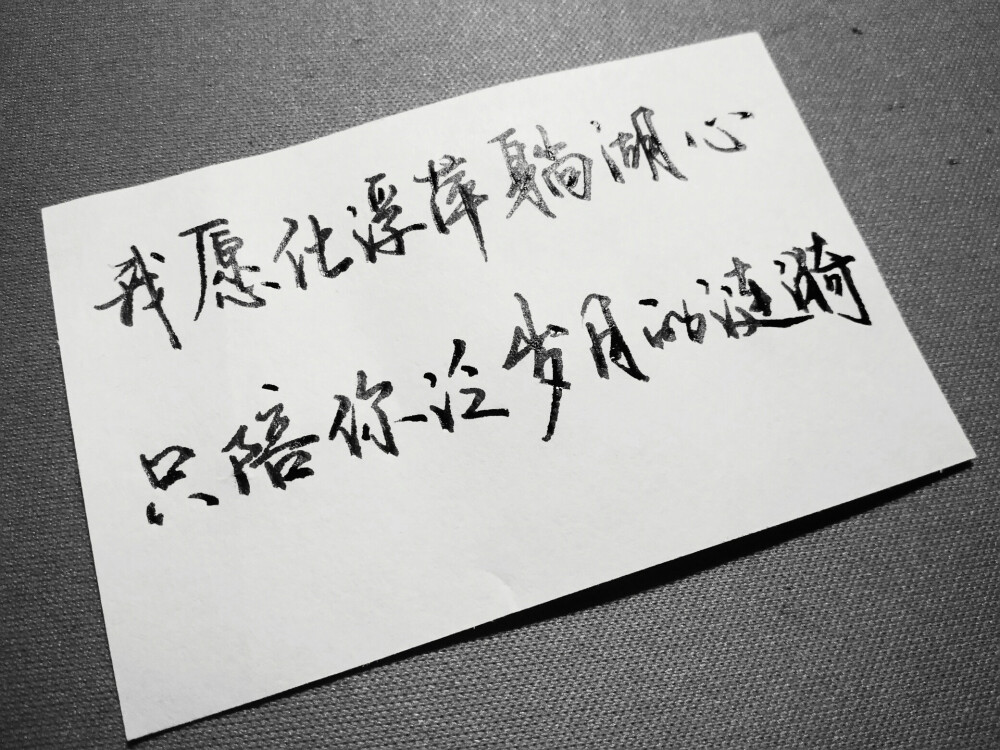 我愿化浮萍躺湖心
只陪你泛岁月的涟漪